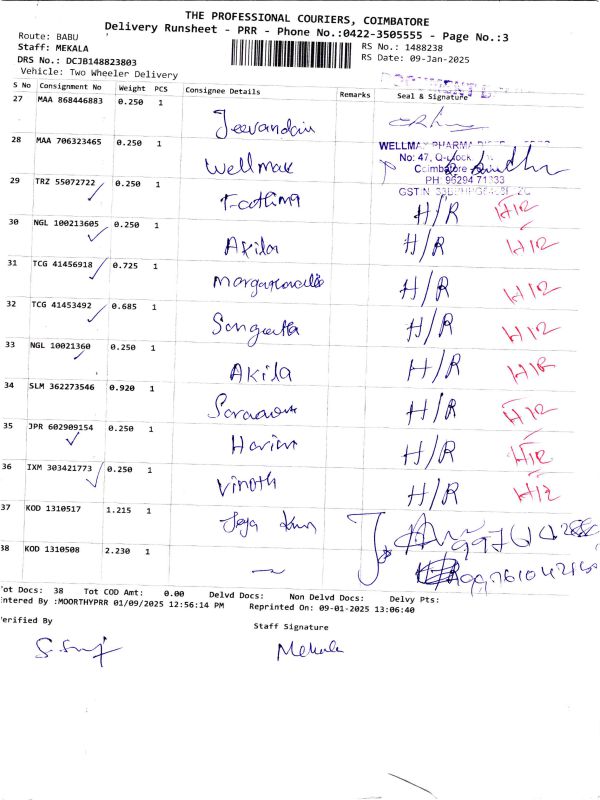 THE PROFESSIONAL COURIERS, COIMBATORE
Delivery Runsheet - PRR - Phone No.:0422-3505555 - Page No.:3
Route: BABU
RS No.: 1488238
Staff: MEKALA
RS Date: 09-Jan-2025
DRS No.: DCJB148823803
Vehicle: Two Wheeler Delivery
S No Consignment No Weight PCS Consignee Details Remarks Seal & Signature
27 MAA 868446883 0.250 1
Jeevandain
28 MAA 706323465 0.250 1
Wellmax
WELLMAX PHARMA
No: 47, Q-Block
Coimbatore
PH 95294 71333
29 TRZ 55072722 0.250 1
Fathima H/R H/R
30 NGL 100213605 0.250 1
Akila H/R H/R
31 TCG 41456918 0.725 1
H/R H/R
32 TCG 41453492 0.685 1
Sangeetha H/R H/R
33 NGL 10021360 0.250 1
Akila H/R H/R
34 SLM 362273546 0.920 1
H/R H/R
35 JPR 602909154 0.250 1
Harini H/R H/R
36 IXM 303421773 0.250 1
Vinoth H/R H/R
37 KOD 1310517 1.215 1
38 KOD 1310508 2.230 1
Tot Docs: 38 Tot COD Amt: 0.00 Delvd Docs: Non Delvd Docs: Delvy Pts:
Entered By :MOORTHYPRR 01/09/2025 12:56:14 PM Reprinted On: 09-01-2025 13:06:40
Verified By
Staff Signature
Mekala